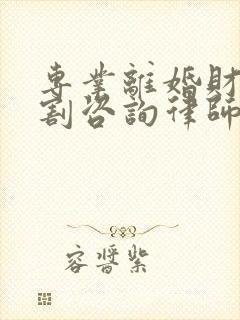 專業離婚財
割咨詢律師
容醬紫